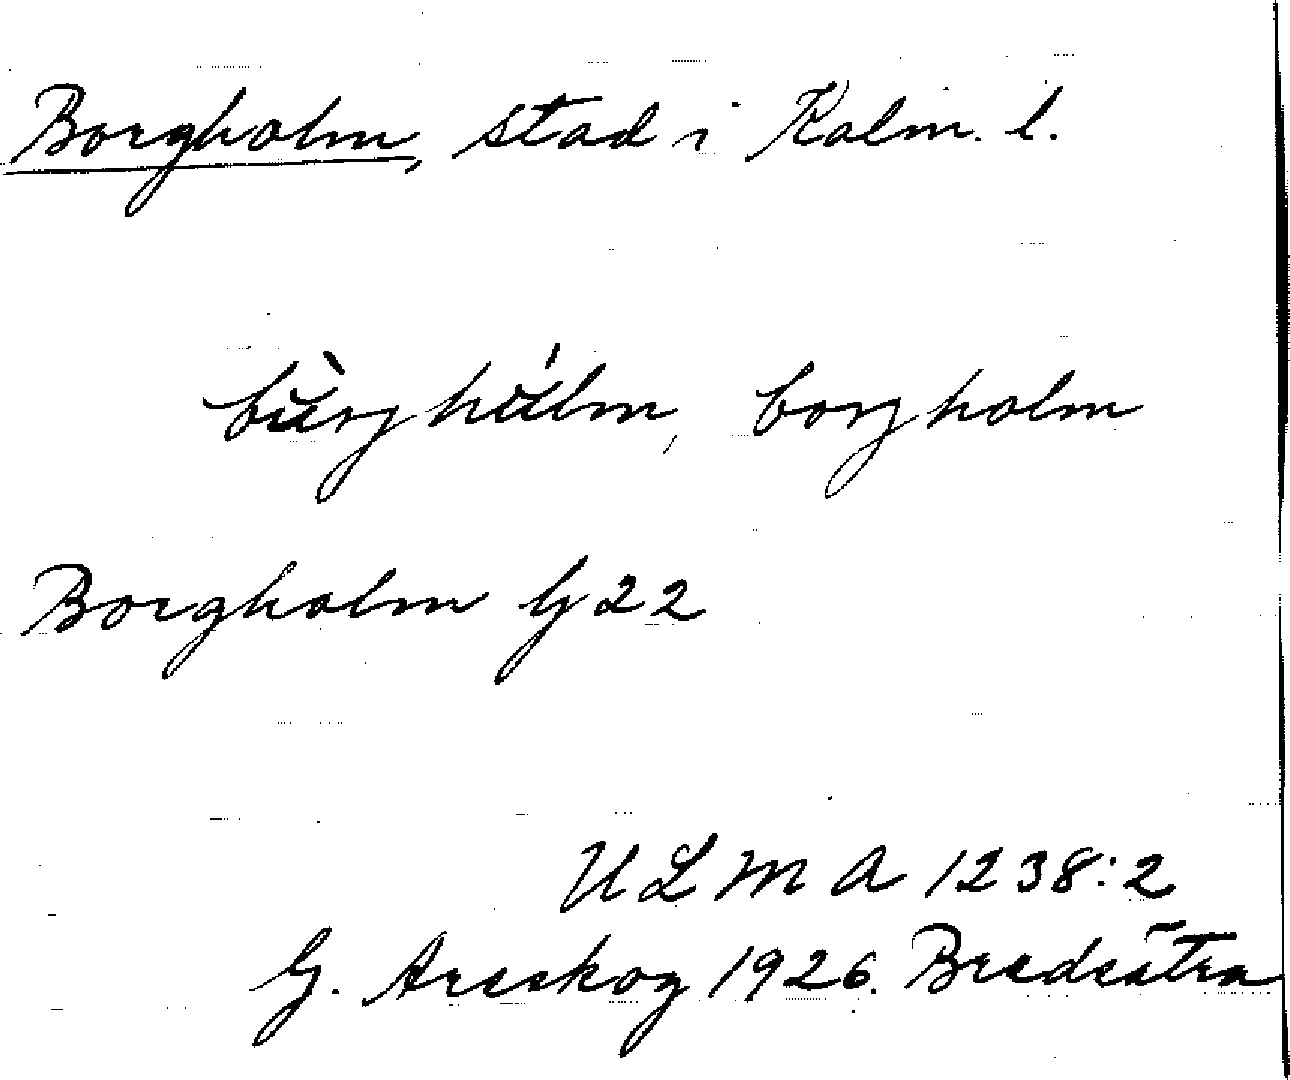 Borgholm, stad i Kalm. l.
bùrghúlm, borgholm
Borgholm G 22
ULMA 1238:2
G. Areskog 1926. Bredsätra